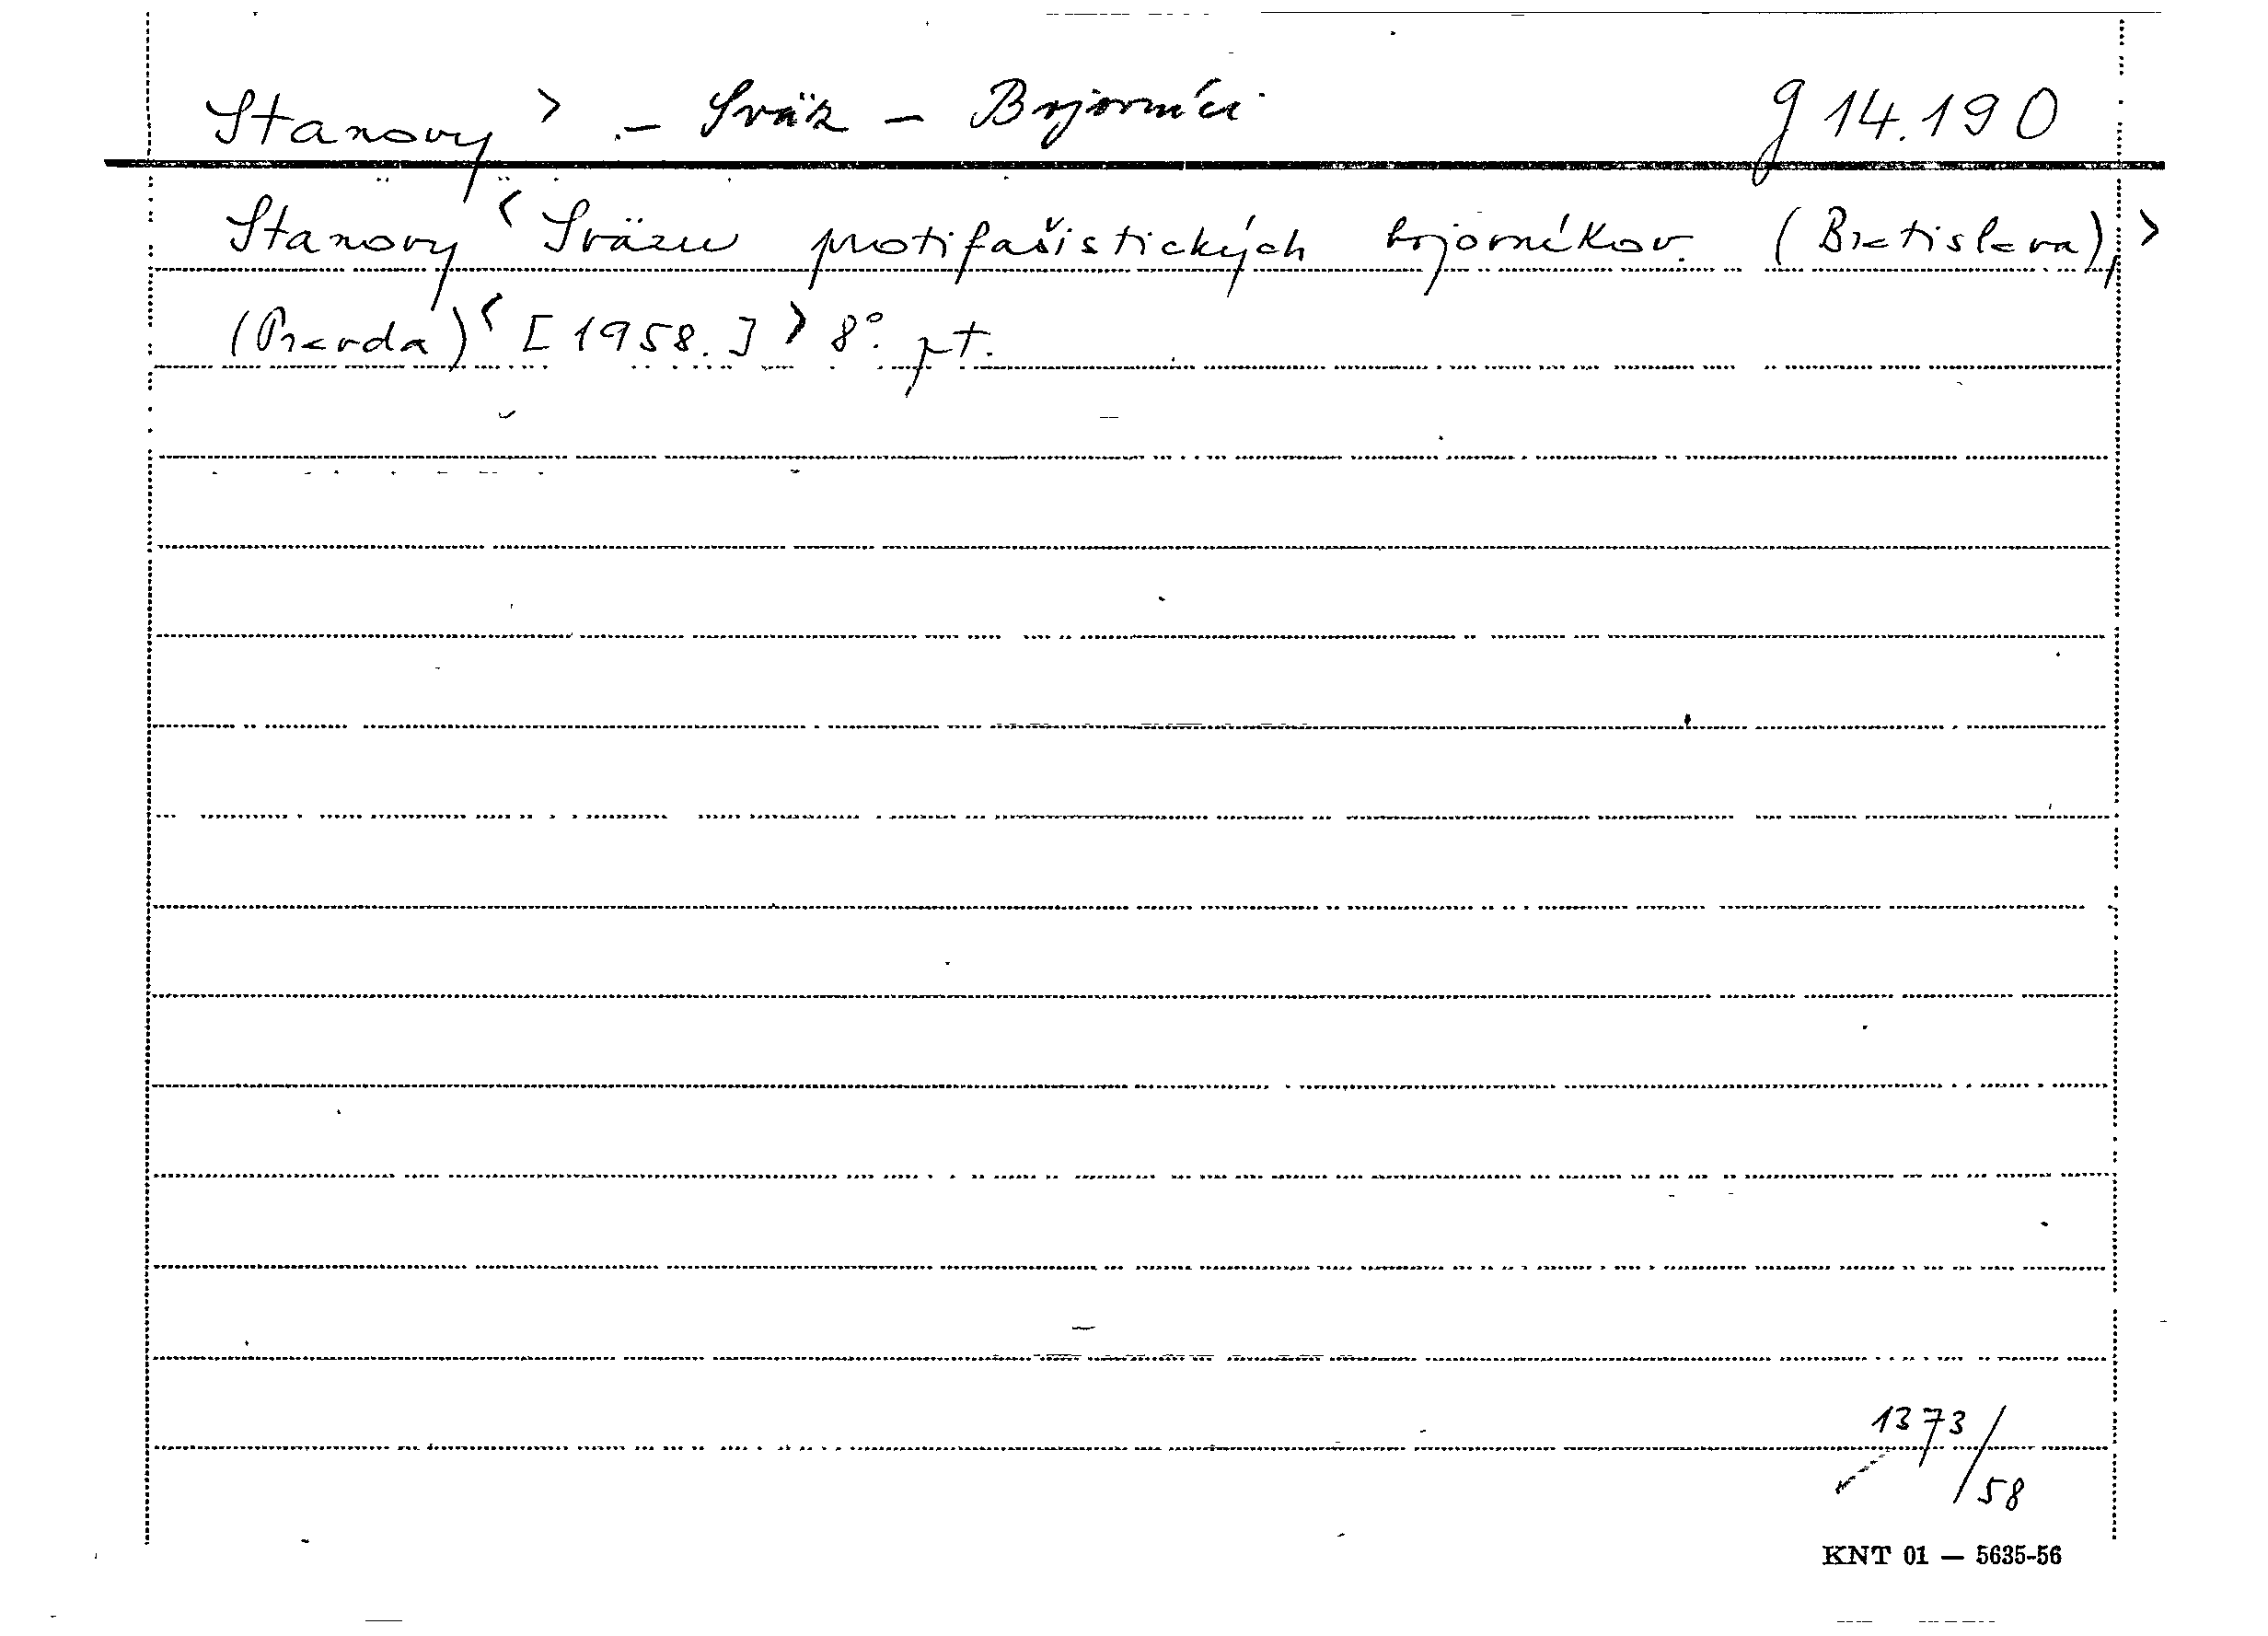 Stanovy > - Sväz - Bojovníci g 14.190
Stanovy < Sväzu protifašistických bojovníkov. (Bratislava), >
(Pravda) < [1958.] > 8° pt.
1373/
58
KNT 01 — 5635-56